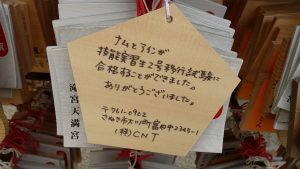 ナムとアインが
技能実習生2号移行試験に
合格することができました。
ありがとうございました。
〒761-0902
さぬき市大川町富田中2345-1
(株)CNT
滝宮天満宮